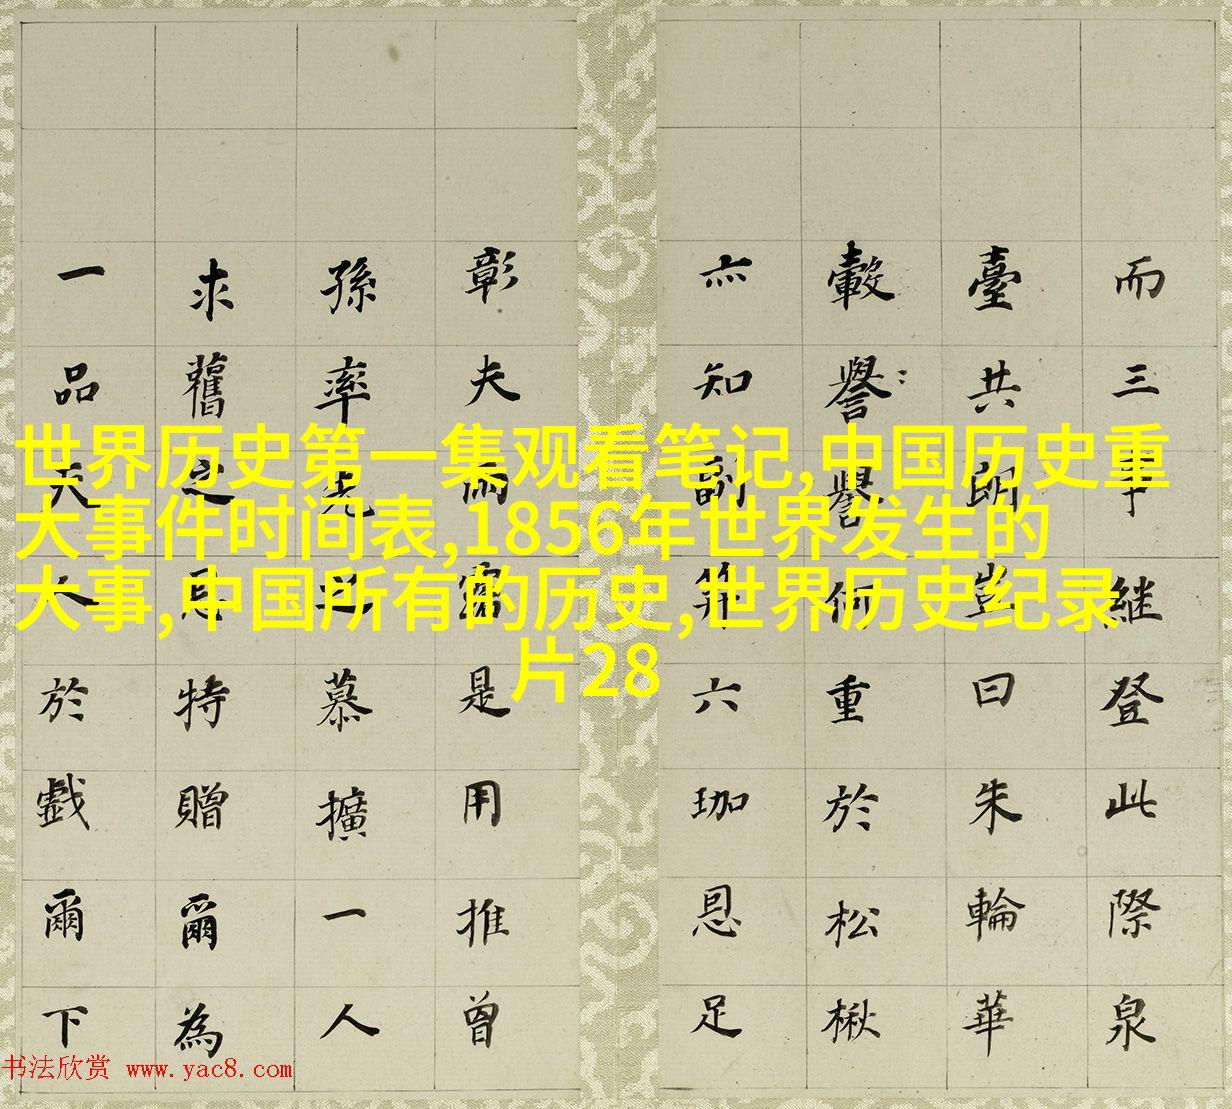 世界历史第一集观看笔记,中国历史重
大事件时间表,1856年世界发生的
大事,中国所有的历史,世界历史纪录
片28
而三年継登此際泉
臺共朗豈曰朱輪華
轂譽譽何重於松楸
亦知副筓六珈恩足
彰夫雨露是用推曾
孫率先之慕擴一人
求舊之恩特贈爾為
一品夫人於戲爾下
书法欣赏 www.yac8.com